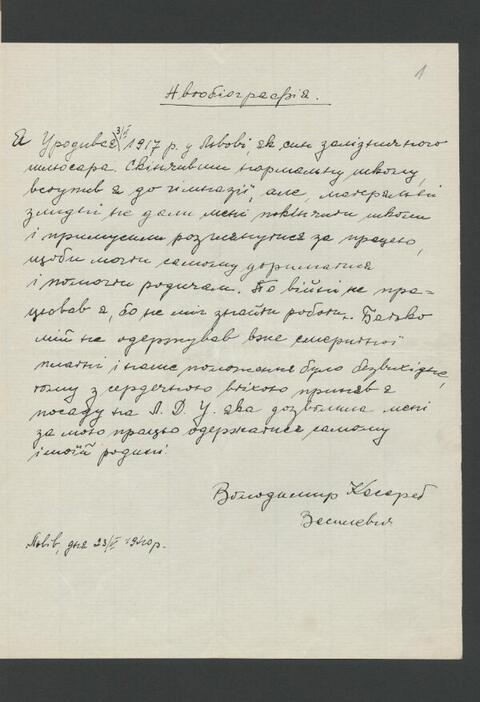 1
Автобіографія.
Я Уродився 3/V 1917 р. у Львові, як син залізничного
шлюсара. Скінчивши нормальну школу,
вступив я до гімназії, але, матеріяльні
злидні не дали мені покінчити школи
і примусили розглянутися за працею,
щоби могти самому удержатися
і помогти родичам. По війні не пра-
цював я, бо не міг знайти роботи. Батько
мій не одержував вже емеритної
платні і наше положення було безвихідне,
тому з сердечною втіхою приняв я
посаду на Л. Д. У. яка дозволила мені
за мою працю одержатися самому
і моїй родині
Володимир
Василевич
Львів, дня 23/V 1940 р.